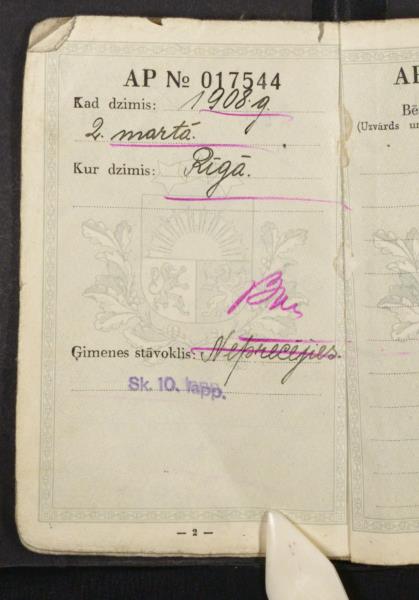 AP № 017544
Kad dzimis: 1908. g.
2. martā.
Kur dzimis: Rīgā.
Ģimenes stāvoklis: Neprecējies.
Sk. 10. lapp.
— 2 —
AP
Bē
(Uzvārds un